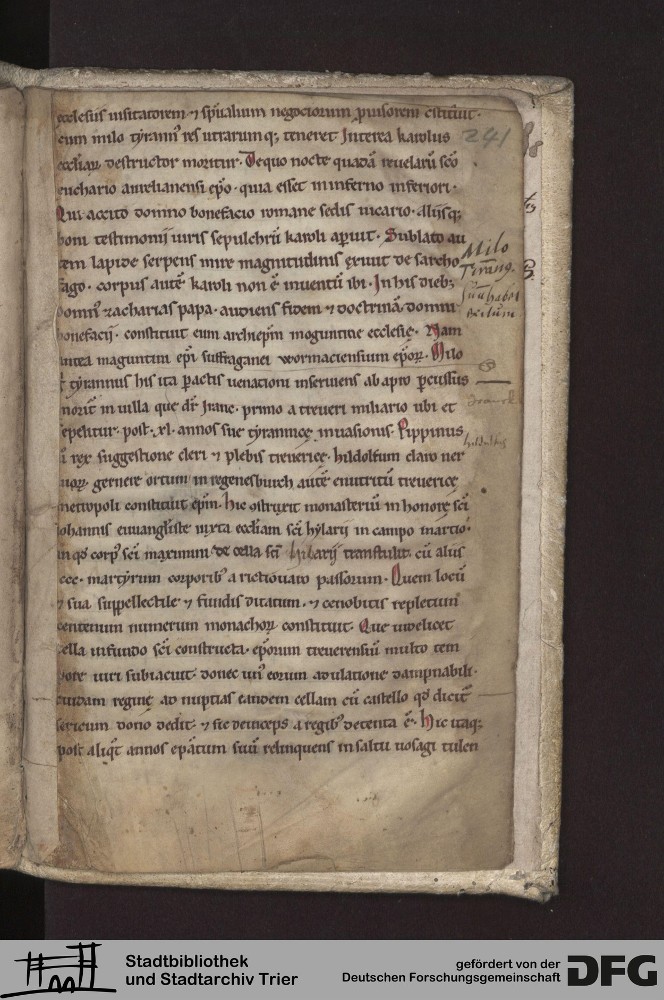 ecclesiis uisitatorem ⁊ sp̄ualium negociorum ꝑuisorem c̄stituit.
cum milo tyrann᷒ res utrarumq; teneret Interea karolus
eccliaꝝ destructor moritur. De quo nocte quadā reuelatū scō
euchario aurelianensi ep̄o. quia esset in inferno inferiori.
Qui accito domno bonefacio romane sedis uicario. Aliisq;
boni testimonii uiris sepulchrū karoli aperuit. Sublato au
tem lapide serpens mire magnitudinis exiuit de sarcho
fago. corpus autē karoli non ē inuentū ibi. In his dieb;
domn᷒ zacharias papa. audiens fidem ⁊ doctrinā domni
bonefacii. constituit eum archiep̄m moguntine ecclesię. Nam
antea maguntini ep̄i suffraganei wormaciensium ep̄oꝝ. Milo
tyrannus his ita ꝑactis uenationi inseruiens ab apro ꝑcussus
moritᷣ in uilla que dr̄ Iranc. primo a treueri miliario ubi et
sepelitur. post .xl. annos sue tyrannicę inuasionis. Pippinus
rex suggestione cleri ⁊ plebis treuericę. hildolfum claro ner
uioꝝ. genere ortum in regenesburch autē enutritū treuericę
metropoli constituit ep̄m. hic ostruxit monasteriū in honore sci
iohannis euuangl̄iste iuxta eccliam sc̄i hylarii in campo martio.
in qd̄ corp᷒ sc̄i maximini de cella sc̄i hilarij transtulit. cū aliis
ccc. martyrum corporib᷒ a rictiouaro passorum. Quem locū
⁊ sua suppellectile ⁊ fundis ditatum. ⁊ cenobitis repletum
centenum numerum monachoꝝ constituit. Que uidelicet
cella in fundo sc̄i constructa. ep̄orum treuerensiū multo tem
pore iuri subiacuit. donec un᷒ eorum adulatione dampnabili.
cuidam reginę ad nuptias eandem cellam cū castello qd̄ dicitᷣ
sericum dono dedit. ⁊ sic deinceps a regib᷒ detenta ē. hic itaq;
post aliqt̄ annos ep̄atum suū relinquens in saltu uosagi
241
Milo
Stadtbibliothek
und Stadtarchiv Trier
gefördert von der
Deutschen Forschungsgemeinschaft
DFG